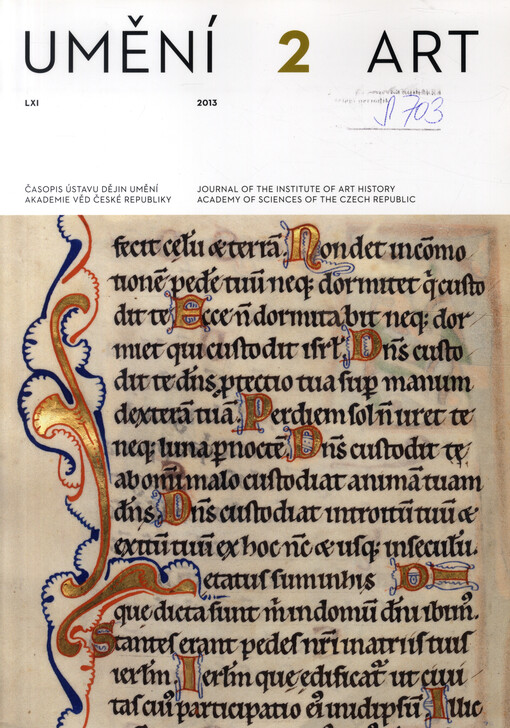 UMĚNÍ 2 ART
LXI 2013
Л 703
ČASOPIS ÚSTAVU DĚJIN UMĚNÍ
AKADEMIE VĚD ČESKÉ REPUBLIKY
JOURNAL OF THE INSTITUTE OF ART HISTORY
ACADEMY OF SCIENCES OF THE CZECH REPUBLIC
fecit celu̅ & terra̅. Non det in co̅mo
tione̅ pede̅ tuu̅ neq; dormitet q̇ custo
dit te Ecce n̅ dormitabit neq; dor
miet qui custodit isrl̅. Dn̅s custo
dit te dn̅s p̱tectio tua sup̱ manum
dextera̅ tua̅. Per diem sol n̅ uret te
neq; luna p̱ nocte̅. Dn̅s custodit te
ab omi̅ malo custodiat anima̅ tuam
dn̅s. Dn̅s custodiat introitu̅ tuu̅ &
exitu̅ tuu̅ ex hoc nc̅ & usq; in seculu̅.
Letatus sum in his
que dicta sunt m̅ in domu̅ dn̅i ibim̅.
Stantes erant pedes nr̅i in atriis tuis
ierl̅m. Ierl̅m que edificat̅ ut ciui
tas cuius participatio ei̅ in idipsu̅. Illic